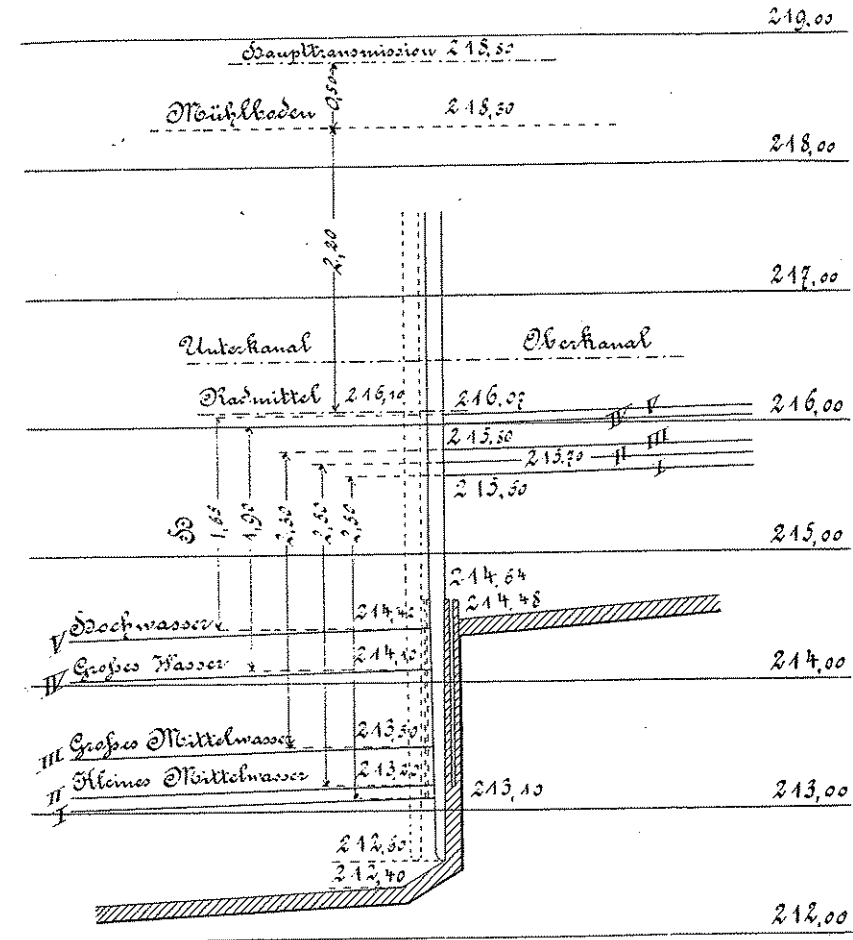 219,00
Haupttransmission 218,80
0,50
Mühlboden 218,30
218,00
2,20
217,00
Unterkanal Oberkanal
Radmittel 216,10 216,07 IV V 216,00
215,80 III
215,70 II
215,60 I
H 1,65 1,90 2,30 2,50 2,50
215,00
214,64
214,48
V Hochwasser 214,42
IV Großes Wasser 214,10 214,00
III Großes Mittelwasser 213,50
II Kleines Mittelwasser 213,20
I 213,10 213,00
212,60
212,40
212,00